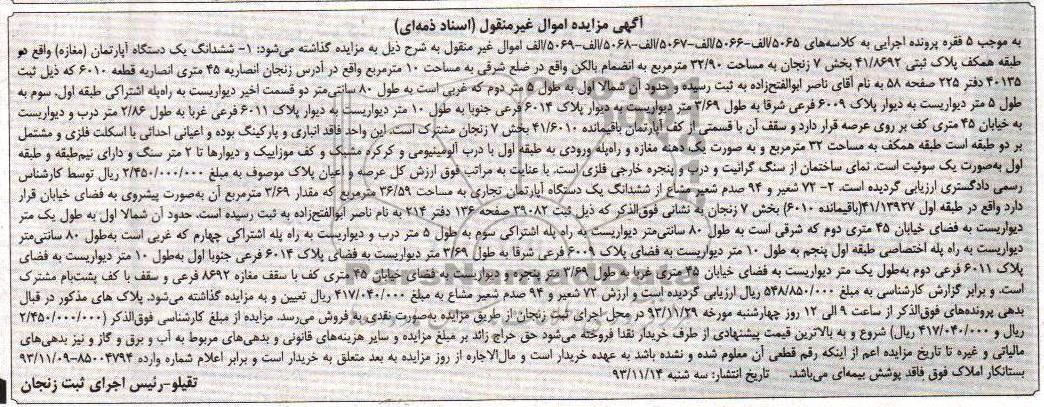 آگهی مزایده اموال غیرمنقول (اسناد ذمه‌ای)
به موجب ۵ فقره پرونده اجرایی به کلاسه‌های ۵۰۶۵/الف-۵۰۶۶/الف-۵۰۶۷/الف-۵۰۶۸/الف-۵۰۶۹/الف اموال غیر منقول به شرح ذیل به مزایده گذاشته می‌شود: ۱- ششدانگ یک دستگاه آپارتمان (مغازه) واقع در
طبقه همکف پلاک ثبتی ۴۱/۸۶۹۲ بخش ۷ زنجان به مساحت ۳۲/۹۰ مترمربع به انضمام بالکن واقع در ضلع شرقی به مساحت ۱۰ مترمربع واقع در آدرس زنجان انصاریه ۴۵ متری انصاریه قطعه ۶۰۱۰ که ذیل ثبت
۴۰۱۳۵ دفتر ۲۲۵ صفحه ۵۸ به نام آقای ناصر ابوالفتح‌زاده به ثبت رسیده و حدود آن شمالا اول به طول ۵ متر دوم که غربی است به طول ۸۰ سانتی‌متر دو قسمت اخیر دیواریست به راه‌پله اشتراکی طبقه اول، سوم به
طول ۵ متر دیواریست به دیوار پلاک ۶۰۰۹ فرعی شرقا به طول ۳/۶۹ متر دیواریست به دیوار پلاک ۶۰۱۴ فرعی جنوبا به طول ۱۰ متر دیواریست به دیوار پلاک ۶۰۱۱ فرعی غربا به طول ۲/۸۶ متر درب و دیواریست
به خیابان ۴۵ متری کف بر روی عرصه قرار دارد و سقف آن با قسمتی از کف آپارتمان باقیمانده ۴۱/۶۰۱۰ بخش ۷ زنجان مشترک است. این واحد فاقد انباری و پارکینگ بوده و اعیانی احداثی با اسکلت فلزی و مشتمل
بر دو طبقه است طبقه همکف به مساحت ۳۲ مترمربع و به صورت یک دهنه مغازه و راه‌پله ورودی به طبقه اول با درب آلومینیومی و کرکره مشبک و کف موزاییک و دیوارها تا ۲ متر سنگ و دارای نیم‌طبقه و طبقه
اول به‌صورت یک سوئیت است. نمای ساختمان از سنگ گرانیت و درب و پنجره خارجی فلزی است. با عنایت به مراتب فوق ارزش کل عرصه و اعیان پلاک موصوف به مبلغ ۲/۴۵۰/۰۰۰/۰۰۰ ریال توسط کارشناس
رسمی دادگستری ارزیابی گردیده است. ۲- ۷۲ شعیر و ۹۴ صدم شعیر مشاع از ششدانگ یک دستگاه آپارتمان تجاری به مساحت ۳۶/۵۹ مترمربع که مقدار ۳/۶۹ مترمربع آن به‌صورت پیشروی به فضای خیابان قرار
دارد واقع در طبقه اول ۴۱/۱۳۹۲۷(باقیمانده ۶۰۱۰) بخش ۷ زنجان به نشانی فوق‌الذکر که ذیل ثبت ۳۹۰۸۲ صفحه ۱۳۶ دفتر ۲۱۴ به نام ناصر ابوالفتح‌زاده به ثبت رسیده است. حدود آن شمالا اول به طول یک متر
دیواریست به فضای خیابان ۴۵ متری دوم که شرقی است به طول ۸۰ سانتی‌متر دیواریست به راه پله اشتراکی سوم به طول ۵ متر درب و دیواریست به راه پله اشتراکی چهارم که غربی است به‌طول ۸۰ سانتی‌متر
دیواریست به راه پله اختصاصی طبقه اول پنجم به طول ۱۰ متر دیواریست به فضای پلاک ۶۰۰۹ فرعی شرقا به طول ۳/۶۹ متر دیواریست به فضای پلاک ۶۰۱۴ فرعی جنوبا اول به‌طول ۱۰ متر دیواریست به فضای
پلاک ۶۰۱۱ فرعی دوم به‌طول یک متر دیواریست به فضای خیابان ۴۵ متری غربا به طول ۳/۶۹ متر پنجره و دیواریست به فضای خیابان ۴۵ متری کف با سقف مغازه ۸۶۹۲ فرعی و سقف با کف پشت‌بام مشترک
است. و برابر گزارش کارشناسی به مبلغ ۵۴۸/۸۵۰/۰۰۰ ریال ارزیابی گردیده است و ارزش ۷۲ شعیر و ۹۴ صدم شعیر مشاع به مبلغ ۴۱۷/۰۴۰/۰۰۰ ریال تعیین و به مزایده گذاشته می‌شود. پلاک های مذکور در قبال
بدهی پرونده‌های فوق‌الذکر از ساعت ۹ الی ۱۲ روز چهارشنبه مورخه ۹۳/۱۱/۲۹ در محل اجرای ثبت زنجان از طریق مزایده به‌صورت نقدی به فروش می‌رسد. مزایده از مبلغ کارشناسی فوق‌الذکر (۲/۴۵۰/۰۰۰/۰۰۰
ریال و ۴۱۷/۰۴۰/۰۰۰ ریال) شروع و به بالاترین قیمت پیشنهادی از طرف خریدار نقدا فروخته می‌شود حق حراج زائد بر مبلغ مزایده و سایر هزینه‌های قانونی و بدهی‌های مربوط به آب و برق و گاز و نیز بدهی‌های
مالیاتی و غیره تا تاریخ مزایده اعم از اینکه رقم قطعی آن معلوم شده و نشده باشد به عهده خریدار است و مال‌الاجاره از روز مزایده به بعد متعلق به خریدار است و برابر اعلام شماره وارده ۸۵۰۰۴۷۹۴-۹۳/۱۱/۰۹
بستانکار املاک فوق فاقد پوشش بیمه‌ای می‌باشد. تاریخ انتشار: سه شنبه ۹۳/۱۱/۱۴
تقیلو-رئیس اجرای ثبت زنجان